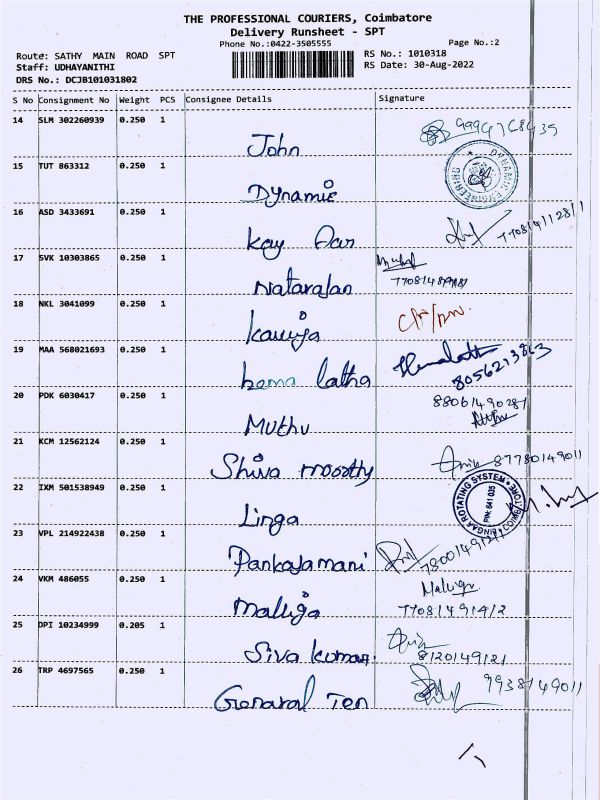 THE PROFESSIONAL COURIERS, Coimbatore
Delivery Runsheet - SPT
Phone No.:0422-3505555
Page No.:2
Route: SATHY MAIN ROAD SPT
RS No.: 1010318
Staff: UDHAYANITHI
RS Date: 30-Aug-2022
DRS No.: DCJB101031802
S No Consignment No Weight PCS Consignee Details Signature
14 SLM 302260939 0.250 1
John
15 TUT 863312 0.250 1
Dynamic
DYNAMIC ENGINEERING
16 ASD 3433691 0.250 1
Kay
17 SVK 10303865 0.250 1
Natarajan
18 NKL 3041099 0.250 1
19 MAA 568021693 0.250 1
hema latha
Hemalatha
8056213863
20 PDK 6030417 0.250 1
Muthu
8806149028/
21 KCM 12562124 0.250 1
Shiva moorthy
87780149011
22 IXM 501538949 0.250 1
Linga
ROTATING SYSTEM
COIMBATORE
PIN: 641 035
23 VPL 214922438 0.250 1
Pankajamani
24 VKM 486055 0.250 1
770814914/2
25 DPI 10234999 0.205 1
Siva kumar
8120149121
26 TRP 4697565 0.250 1
Genaral Ten
9938149011